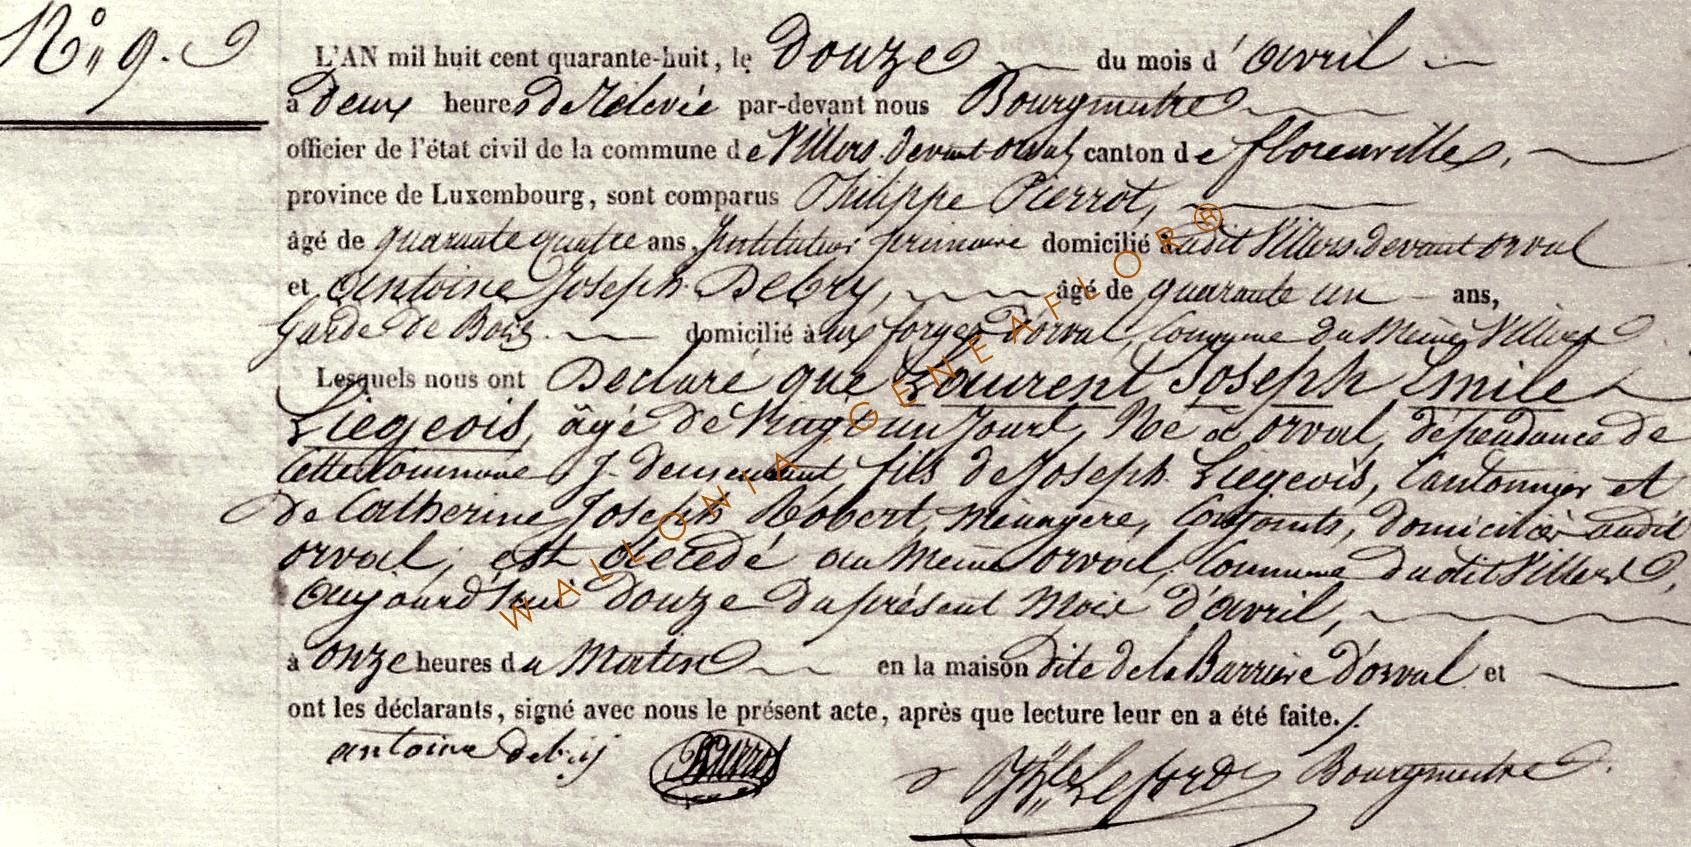 N° 9.
L'AN mil huit cent quarante-huit, le Douze du mois d'avril
à Deux heures de Relevée par-devant nous Bourgmestre
officier de l'état civil de la commune de Villers devant orval, canton de florenville,
province de Luxembourg, sont comparus Philippe Pierrot,
âgé de quarante quatre ans, Instituteur primaire domicilié audit Villers devant orval
et Antoine Joseph Debry, âgé de quarante un ans,
Garde de Bois domicilié aux forges d'orval, Commune du Même Villers
Lesquels nous ont Declaré que Laurent Joseph Emile
Liegeois, âgé de Vingt un Jours, Né à orval, dépendance de
cette Commune J. demeurant, fils de Joseph Liegeois, Cantonnier et
De Catherine Joseph Robert, Ménagère, Conjoints, domiciliés audit
orval, est décédé au Même orval, Commune dudit Villers,
aujourd'hui Douze du présent Mois d'avril,
à onze heures du Matin en la maison dite de la Barrière D'orval et
ont les déclarants, signé avec nous le présent acte, après que lecture leur en a été faite./.
antoine debrij Pierrot Leford Bourgmestre
WALLONIA-GENEAFLOR®